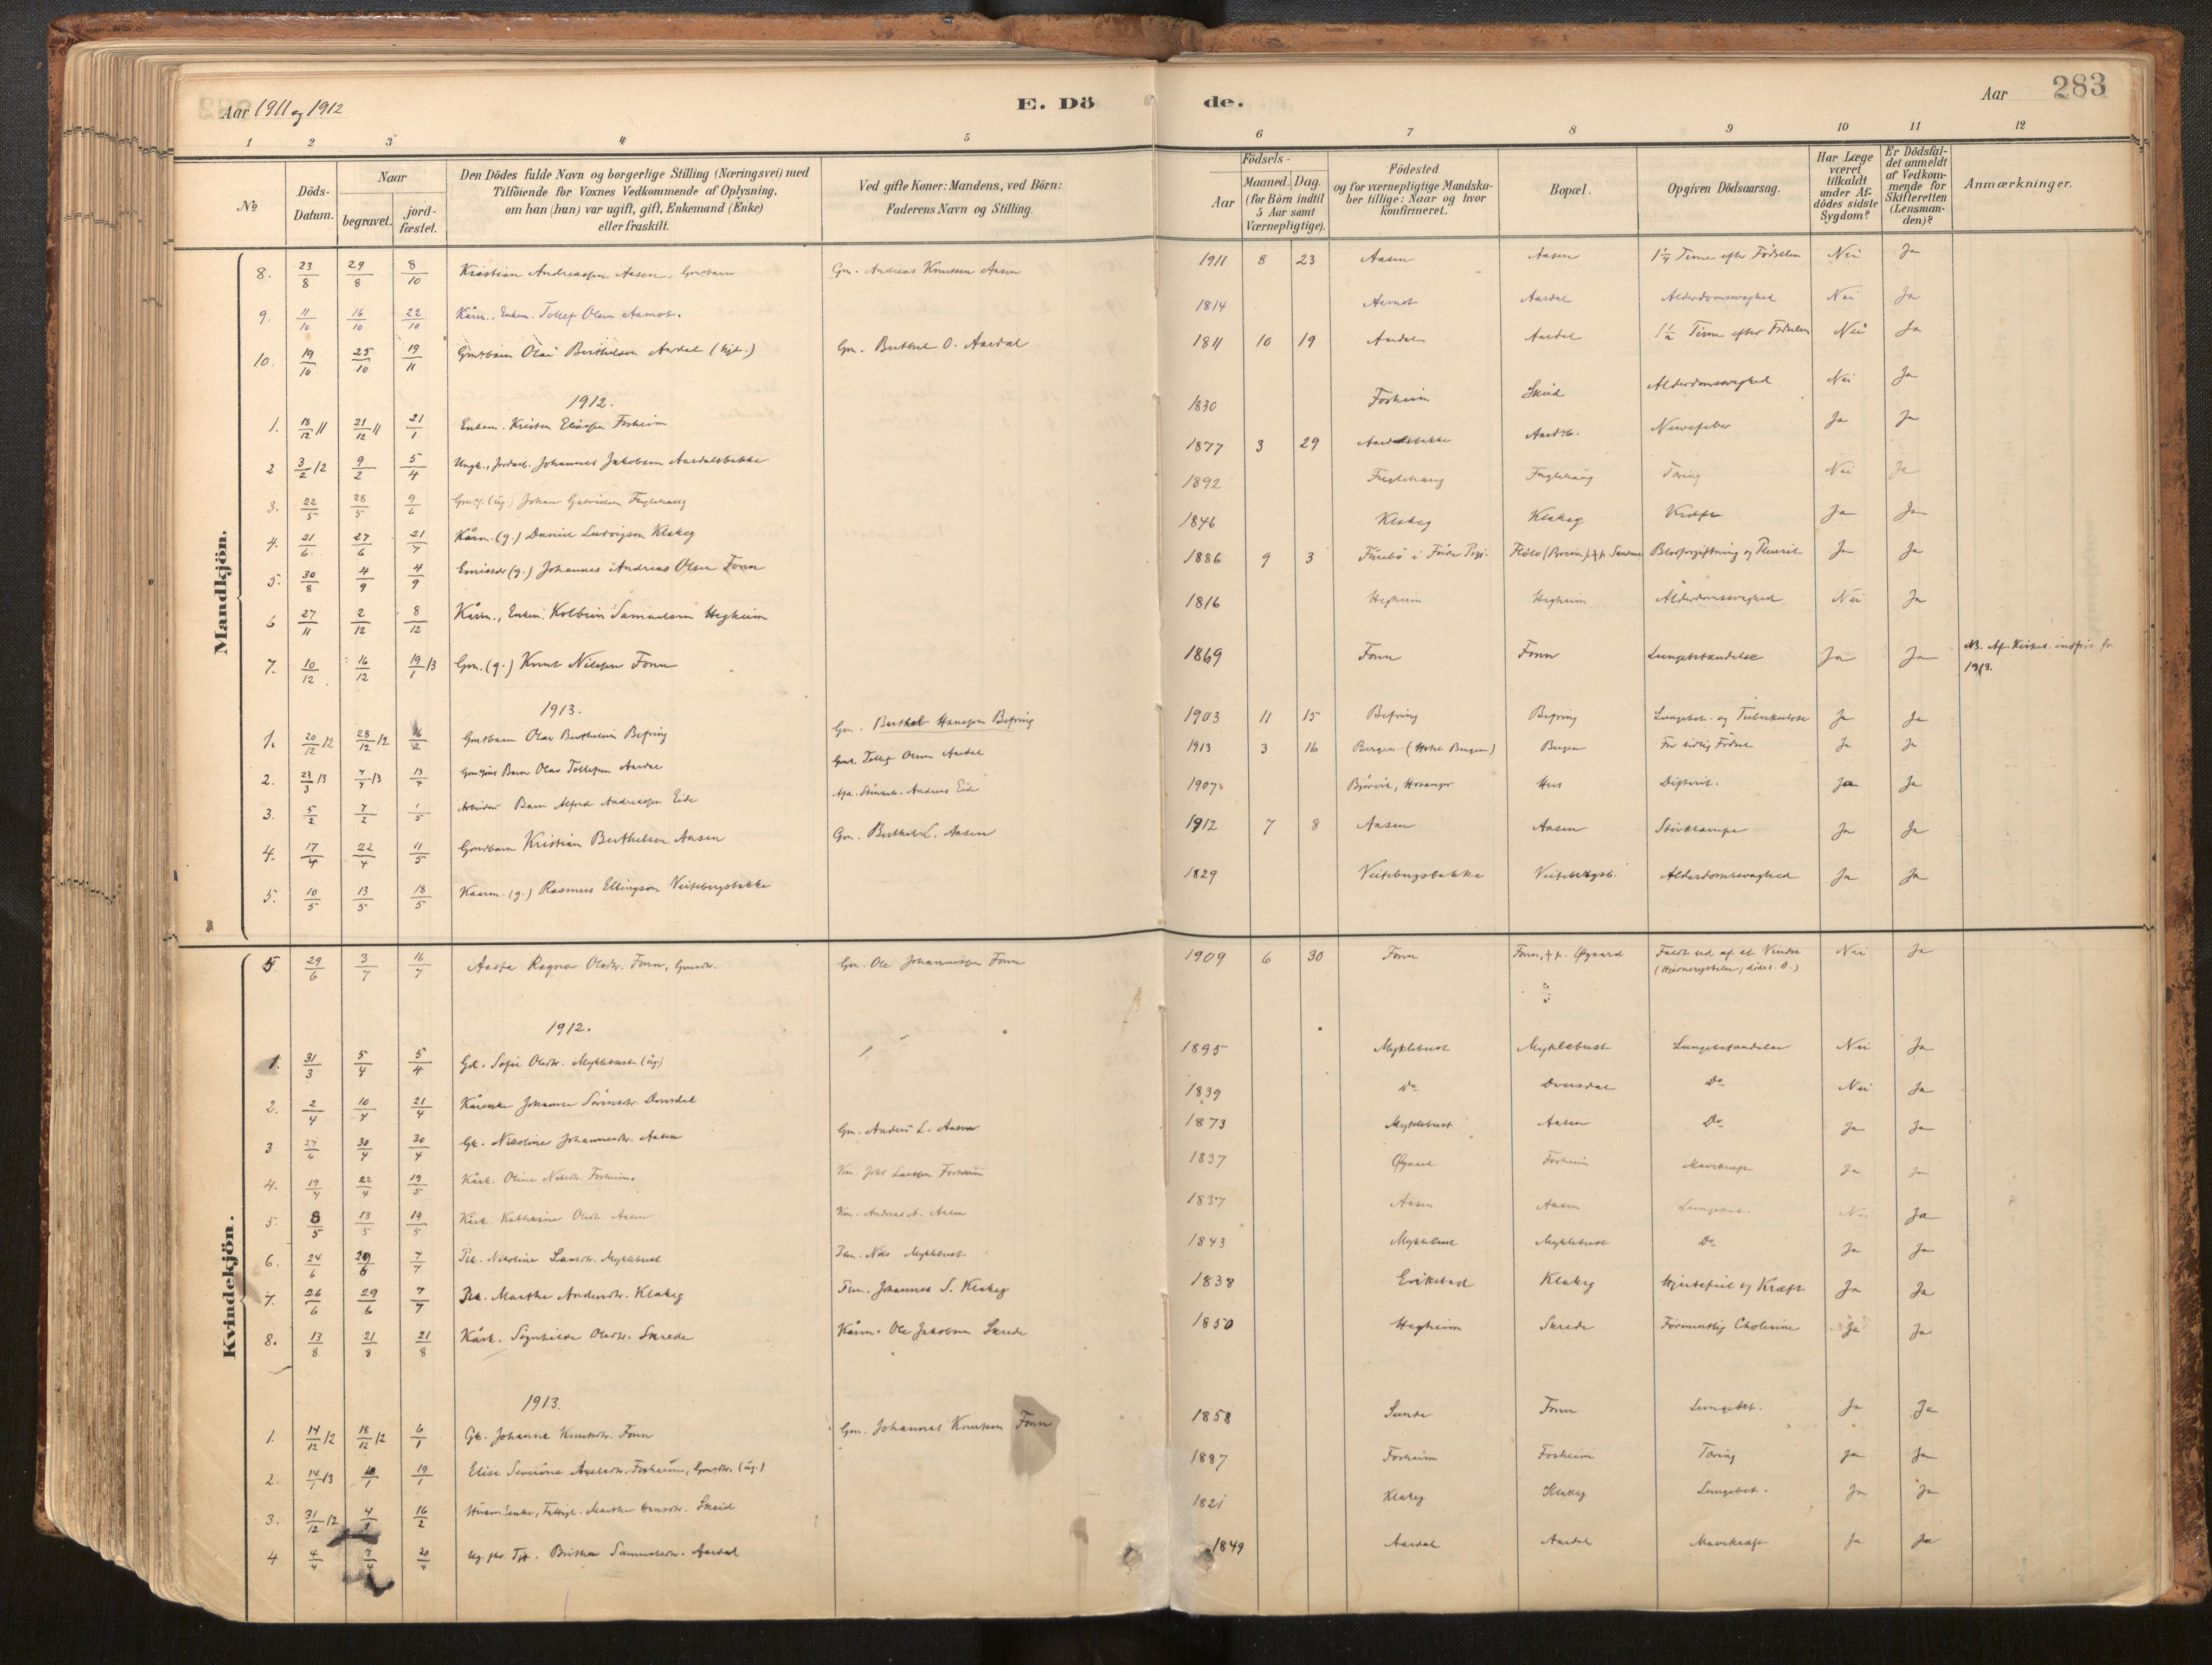 Aar 1911 og 1912
E. Dö de.
Aar
283
1 2 3 4 5 6 7 8 9 10 11 12
No
Döds-Datum.
Naar
begravet.
jord-fæstet.
Den Dödes fulde Navn og borgerlige Stilling (Næringsvei) med
Tilföiende for Voxnes Vedkommende af Oplysning,
om han (hun) var ugift, gift, Enkemand (Enke)
eller fraskilt.
Ved gifte Koner: Mandens, ved Börn:
Faderens Navn og Stilling.
Födsels-
Aar
Maaned. Dag.
(for Börn indtil
5 Aar samt
Værnepligtige).
Födested
og for værnepligtige Mandska-
ber tillige: Naar og hvor
konfirmeret.
Bopæl.
Opgiven Dödsaarsag.
Har Læge
været
tilkaldt
under Af-
dödes sidste
Sygdom?
Er Dödsfal-
det anmeldt
af Vedkom-
mende for
Skifteretten
(Lensman-
den)?
Anmærkninger.
Mandkjön.
8. 23/8 29/8 8/10 Kristian Andreassen Aasen, Gmdbarn Gm. Andreas Knutsen Aasen 1911 8 23 Aasen Aasen 1 1/4 Time efter Fødselen Nei Ja
9. 11/10 16/10 22/10 Kårm., Enkem. Tollef Olsen Aamot. 1814 Aamot Aardal Alderdomssvaghed Nei Ja
10. 19/10 25/10 19/11 Gmdbarn Olai Berthelsen Aardal (hjd.) Gm. Berthel O. Aardal 1811 10 19 Aardal Aardal 1 1/2 Time efter Fødselen Nei Ja
1912.
1. 18/12 11 21/12 11 21/1 Enkem. Kristen Eliassen Forheim 1830 Forheim Skeid Alderdomssvaghed Nei Ja
2 3/2 12 9/2 5/4 Ungk., Jordarb. Johannes Jakobsen Aardalsbakke 1877 3 29 Aardalsbakke Aardsb. Nervefeber Ja Ja
3. 22/5 28/5 9/6 (ug.) Johan Fuglehaug 1892 Fuglehaug Fuglehaug Tæring Nei Ja
4. 21/6 27/6 21/7 Kårm. (g.) Daniel Ludvigsen Klakeg 1846 Klakeg Klakeg Kræft Ja Ja
5. 30/8 4/9 4/9 Emissær (g.) Johannes Andreas Olsen Fonn 1886 9 3 Førde Flølo (Breim), † p. Sandane Blodforgiftning og Pleurit Ja Ja
6 27/11 2/12 8/12 Kårm., Enkem. Kolbein Samuelsen Hegheim 1816 Hegheim Hegheim Alderdomssvaghed Nei Ja
7. 10/12 16/12 19/1 13 Gm. (g.) Knut Nilsen Fonn 1869 Fonn Fonn Lungebetændelse Ja Ja NB. Af indført for
1913.
1913.
1. 20/12 12 28/12 12 16/2 Gmdbarn Olav Berthelsen Befring Gm. Berthel Hansen Befring 1903 11 15 Befring Befring Lungebet. og Tuberkulose Ja Ja
2. 23/3 13 4/4 13 13/4 Barn Olav Tollefsen Aardal Tollef Olsen Aardal 1913 3 16 Bergen (Hotel Bergen) Bergen For tidlig Fødsel Ja Ja
3. 5/2 7/2 1/5 Arbeider Barn Alfred Andreassen Eide Andreas Eide 1907 Bjørvik, Hosanger Hus Difterit. Ja Ja
4. 17/4 22/4 11/5 Gmdbarn Kristian Berthelsen Aasen Gm. Berthel L. Aasen 1912 7 8 Aasen Aasen Stivkrampe Ja Ja
5. 10/5 13/5 18/5 Kaarm. (g.) Rasmus Ellingsen Veitebergsbakke 1829 Veitebergsbakke Veitebergsb. Alderdomssvaghed Ja Ja
Kvindekjön.
5. 29/6 3/7 16/7 Aasta Ragna Olsdtr. Fonn, Gmdtr. Gm. Ole Johannessen Fonn 1909 6 30 Fonn Fonn, † p. Øygaard Faldt ud af et Vindu Nei Ja
1912.
1. 31/3 5/4 5/4 Gd. Sofie Olsdtr. Myklebust (ug.) 1895 Myklebust Myklebust Lungebetændelse Nei Ja
2. 2/4 10/4 21/4 Kårenke Johanne Dvergsdal 1839 Do Dvergsdal Do Nei Ja
3 24/4 30/4 30/4 Gk. Nikoline Johannesdtr. Aasen Gm. Anders L. Aasen 1873 Myklebust Aasen Do Ja Ja
4. 19/4 22/4 19/5 Kårk. Oline Nilsdtr. Forheim. Km. Joh. Larssen Forheim 1837 Øygard Forheim Mavekræft Ja Ja
5. 8/5 13/5 19/5 Kårk. Katharine Olsdtr. Aasen Km. Andreas A. Aasen 1837 Aasen Aasen Lungebet. Nei Ja
6. 24/6 29/6 7/7 Nikoline Larsdtr. Myklebust Nils Myklebust 1843 Myklebust Myklebust Do Ja Ja
7. 26/6 29/6 7/7 Marthe Andersdtr. Klakeg Johannes S. Klakeg 1838 Erikstad Klakeg Hjertefeil og Kræft Ja Ja
8. 13/8 21/8 21/8 Kårk. Sygnhilde Olsdtr. Skrede Kårm. Ole Jakobsen Skrede 1850 Hegheim Skrede Formentlig Cholerine Ja Ja
1913.
1. 14/12 12 18/12 12 6/1 Gk. Johanne Knutsdtr. Fonn Gm. Johannes Knutsen Fonn 1858 Sunde Fonn Lungebet. Ja Ja
2. 14/1 13 19/1 Elise Severine Axelsdtr. Forheim, Gmdtr. (ug.) 1887 Forheim Forheim Tæring Ja Ja
3. 31/12 12 4/1 16/2 Marthe Hansdtr. Skeid 1821 Klakeg Klakeg Lungebet. Ja Ja
4 4/4 7/4 20/4 Brithe Samuelsdtr. Aardal 1849 Aardal Aardal Mavekræft Ja Ja